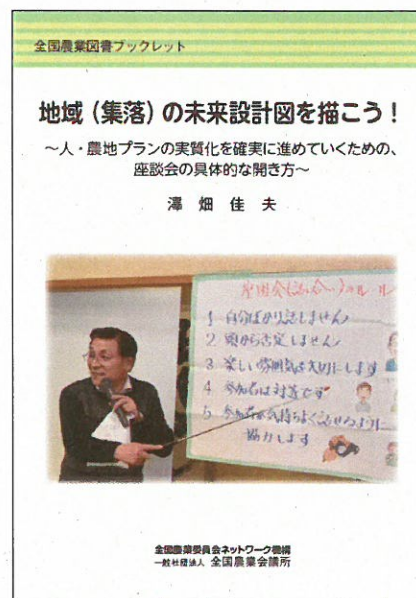 全国農業図書ブックレット
地域（集落）の未来設計図を描こう！
～人・農地プランの実質化を確実に進めていくための、
座談会の具体的な開き方～
澤畑佳夫
座談会(話し合い)のルール
1 自分ばかり話しません
2 頭から否定しません
3 楽しい雰囲気を大切にします
4 参加者は対等です
5 参加者が気持ちよく話せるように
協力します
全国農業委員会ネットワーク機構
一般社団法人 全国農業会議所